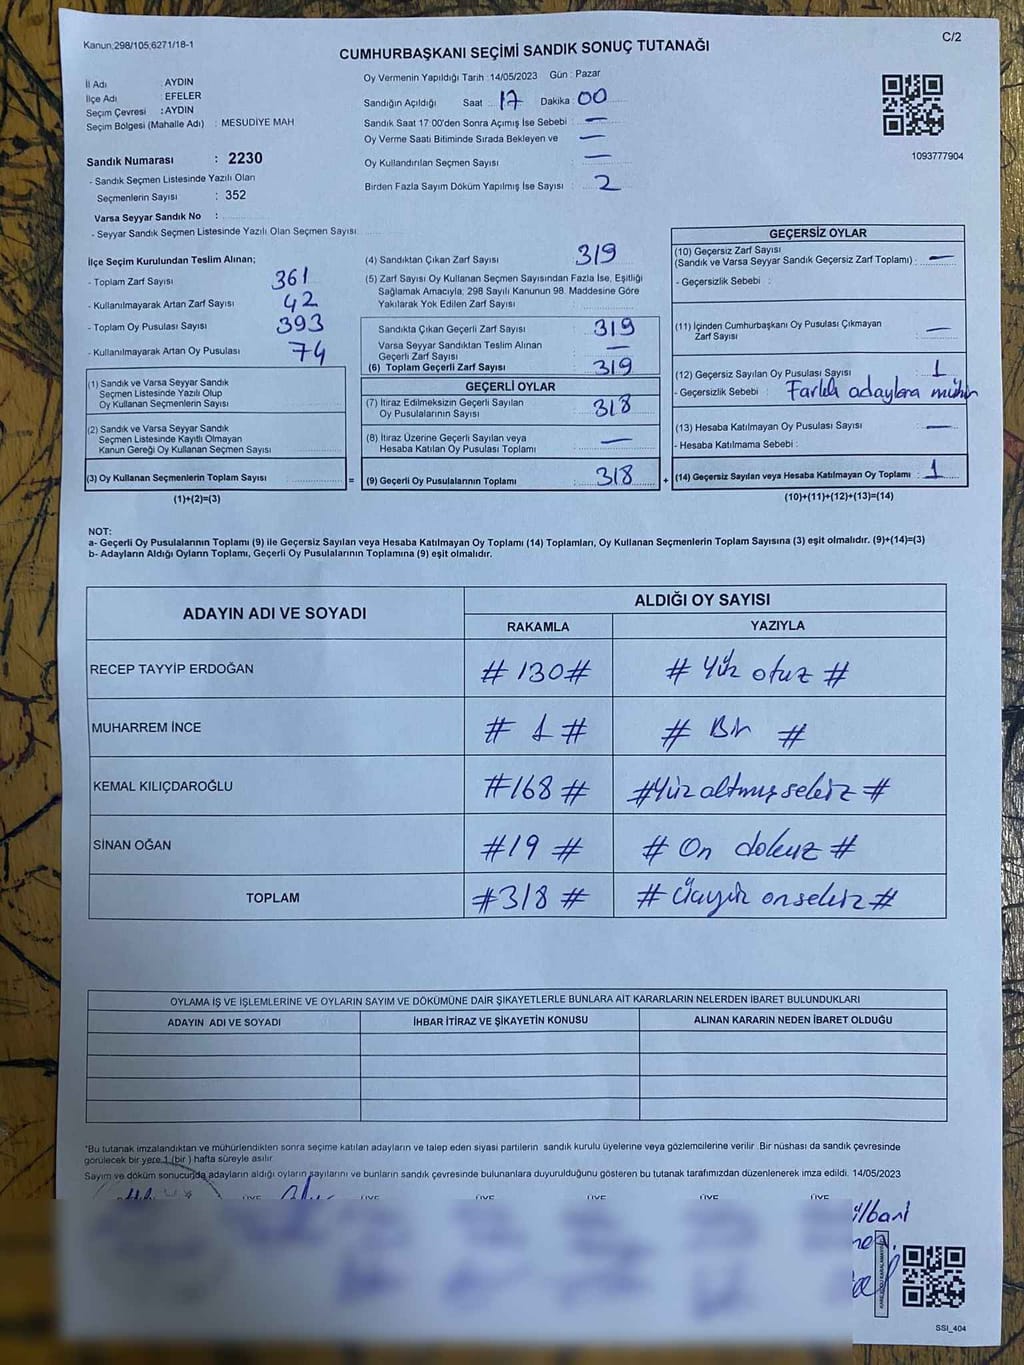 Kanun:298/105;6271/18-1
C/2
CUMHURBAŞKANI SEÇİMİ SANDIK SONUÇ TUTANAĞI
İl Adı : AYDIN
İlçe Adı : EFELER
Seçim Çevresi : AYDIN
Seçim Bölgesi (Mahalle Adı) : MESUDİYE MAH
Sandık Numarası : 2230
- Sandık Seçmen Listesinde Yazılı Olan
Seçmenlerin Sayısı : 352
Varsa Seyyar Sandık No :
- Seyyar Sandık Seçmen Listesinde Yazılı Olan Seçmen Sayısı
Oy Vermenin Yapıldığı Tarih : 14/05/2023 Gün : Pazar
Sandığın Açıldığı Saat 17 Dakika : 00
Sandık Saat 17:00'den Sonra Açımış İse Sebebi : —
Oy Verme Saati Bitiminde Sırada Bekleyen ve —
Oy Kullandırılan Seçmen Sayısı —
Birden Fazla Sayım Döküm Yapılmış İse Sayısı : 2
1093777904
İlçe Seçim Kurulundan Teslim Alınan;
- Toplam Zarf Sayısı 361
- Kullanılmayarak Artan Zarf Sayısı 42
- Toplam Oy Pusulası Sayısı 393
- Kullanılmayarak Artan Oy Pusulası 74
(1) Sandık ve Varsa Seyyar Sandık
Seçmen Listesinde Yazılı Olup
Oy Kullanan Seçmenlerin Sayısı
(2) Sandık ve Varsa Seyyar Sandık
Seçmen Listesinde Kayıtlı Olmayan
Kanun Gereği Oy Kullanan Seçmen Sayısı
(3) Oy Kullanan Seçmenlerin Toplam Sayısı =
(1)+(2)=(3)
(4) Sandıktan Çıkan Zarf Sayısı 319
(5) Zarf Sayısı Oy Kullanan Seçmen Sayısından Fazla İse, Eşitliği
Sağlamak Amacıyla, 298 Sayılı Kanunun 98. Maddesine Göre
Yakılarak Yok Edilen Zarf Sayısı
Sandıkta Çıkan Geçerli Zarf Sayısı 319
Varsa Seyyar Sandıktan Teslim Alınan
Geçerli Zarf Sayısı —
(6) Toplam Geçerli Zarf Sayısı 319
GEÇERLİ OYLAR
(7) İtiraz Edilmeksizin Geçerli Sayılan
Oy Pusulalarının Sayısı 318
(8) İtiraz Üzerine Geçerli Sayılan veya
Hesaba Katılan Oy Pusulası Toplamı —
(9) Geçerli Oy Pusulalarının Toplamı 318 +
GEÇERSİZ OYLAR
(10) Geçersiz Zarf Sayısı
(Sandık ve Varsa Seyyar Sandık Geçersiz Zarf Toplamı) : —
- Geçersizlik Sebebi :
(11) İçinden Cumhurbaşkanı Oy Pusulası Çıkmayan
Zarf Sayısı —
(12) Geçersiz Sayılan Oy Pusulası Sayısı 1
- Geçersizlik Sebebi : Farklı adaylara mühür
(13) Hesaba Katılmayan Oy Pusulası Sayısı —
- Hesaba Katılmama Sebebi :
(14) Geçersiz Sayılan veya Hesaba Katılmayan Oy Toplamı : 1
(10)+(11)+(12)+(13)=(14)
NOT:
a- Geçerli Oy Pusulalarının Toplamı (9) ile Geçersiz Sayılan veya Hesaba Katılmayan Oy Toplamı (14) Toplamları, Oy Kullanan Seçmenlerin Toplam Sayısına (3) eşit olmalıdır. (9)+(14)=(3)
b- Adayların Aldığı Oyların Toplamı, Geçerli Oy Pusulalarının Toplamına (9) eşit olmalıdır.
ADAYIN ADI VE SOYADI ALDIĞI OY SAYISI
RAKAMLA YAZIYLA
RECEP TAYYİP ERDOĞAN # 130 # # Yüz otuz #
MUHARREM İNCE # 1 # # Bir #
KEMAL KILIÇDAROĞLU #168 # #Yüz altmış sekiz #
SİNAN OĞAN #19 # # On dokuz #
TOPLAM #318 # # Üçyüz onsekiz #
OYLAMA İŞ VE İŞLEMLERİNE VE OYLARIN SAYIM VE DÖKÜMÜNE DAİR ŞİKAYETLERLE BUNLARA AİT KARARLARIN NELERDEN İBARET BULUNDUKLARI
ADAYIN ADI VE SOYADI İHBAR İTİRAZ VE ŞİKAYETİN KONUSU ALINAN KARARIN NEDEN İBARET OLDUĞU
*Bu tutanak imzalandıktan ve mühürlendikten sonra seçime katılan adayların ve talep eden siyasi partilerin sandık kurulu üyelerine veya gözlemcilerine verilir. Bir nüshası da sandık çevresinde
görülecek bir yere 1 (bir) hafta süreyle asılır.
Sayım ve döküm sonucunda adayların aldığı oyların sayılarını ve bunların sandık çevresinde bulunanlara duyurulduğunu gösteren bu tutanak tarafımızdan düzenlenerek imza edildi. 14/05/2023
ÜYE ÜYE ÜYE ÜYE ÜYE ÜYE
SSI_404